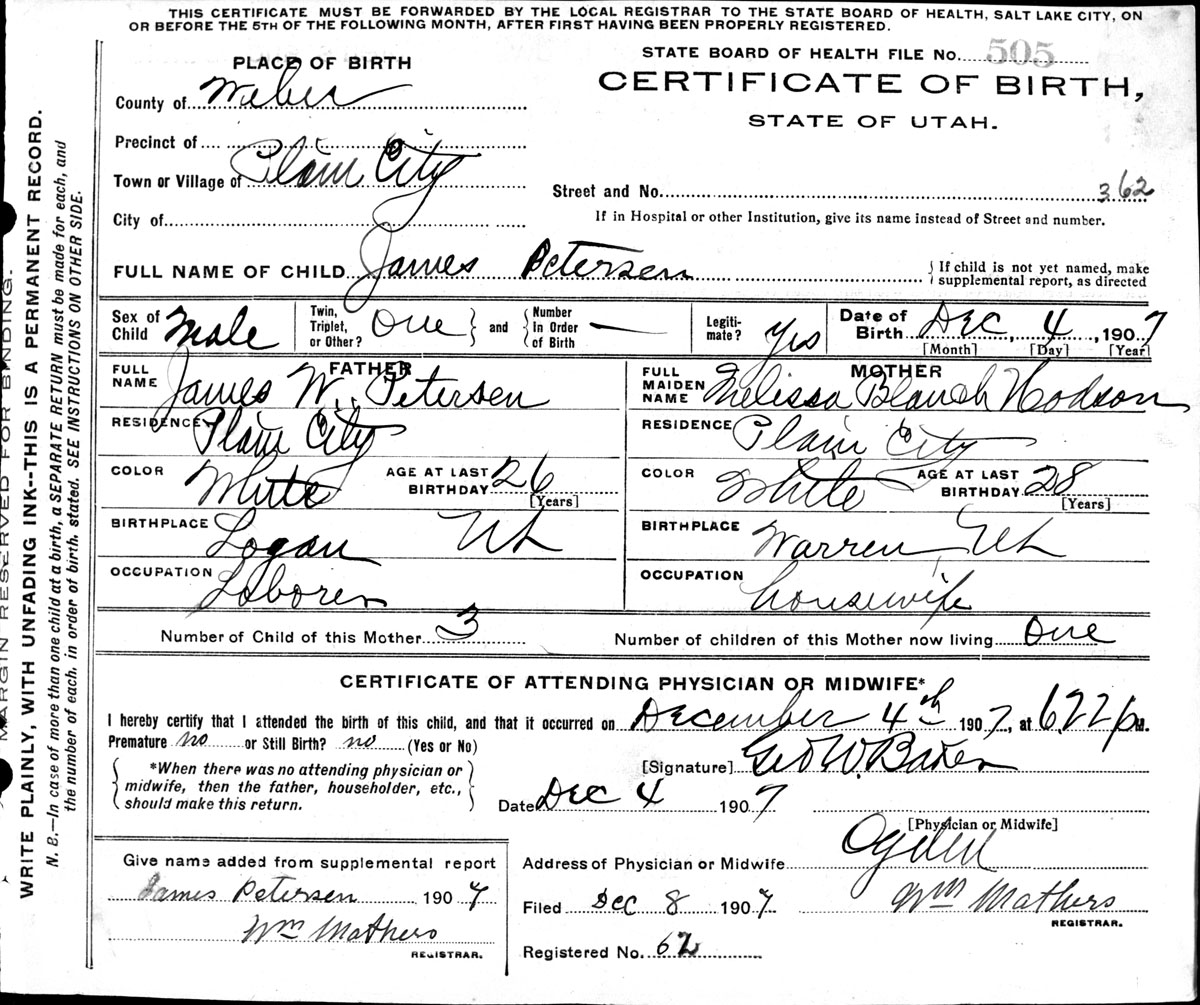 THIS CERTIFICATE MUST BE FORWARDED BY THE LOCAL REGISTRAR TO THE STATE BOARD OF HEALTH, SALT LAKE CITY, ON
OR BEFORE THE 5TH OF THE FOLLOWING MONTH, AFTER FIRST HAVING BEEN PROPERLY REGISTERED.
MARGIN RESERVED FOR BINDING.
WRITE PLAINLY, WITH UNFADING INK---THIS IS A PERMANENT RECORD.
N. B.—In case of more than one child at a birth, a SEPARATE RETURN must be made for each, and
the number of each, in order of birth, stated. SEE INSTRUCTIONS ON OTHER SIDE.
PLACE OF BIRTH
STATE BOARD OF HEALTH FILE No. 505
CERTIFICATE OF BIRTH,
STATE OF UTAH.
County of Weber
Precinct of
Town or Village of Plain City
Street and No. 362
City of
If in Hospital or other Institution, give its name instead of Street and number.
FULL NAME OF CHILD James Petersen { If child is not yet named, make
supplemental report, as directed
Sex of Child Male
Twin, Triplet, or Other? One } and { Number In Order of Birth —
Legitimate? Yes
Date of Birth Dec, 4, 1907
[Month] [Day] [Year]
FATHER
FULL NAME James W. Petersen
RESIDENCE Plain City
COLOR White AGE AT LAST BIRTHDAY 26
[Years]
BIRTHPLACE Logan Ut
OCCUPATION Laborer
MOTHER
FULL MAIDEN NAME Melissa Blanch Hodson
RESIDENCE Plain City
COLOR White AGE AT LAST BIRTHDAY 28
[Years]
BIRTHPLACE Warren Ut
OCCUPATION housewife
Number of Child of this Mother 3 Number of children of this Mother now living One
CERTIFICATE OF ATTENDING PHYSICIAN OR MIDWIFE*
I hereby certify that I attended the birth of this child, and that it occurred on December 4th 1907, at 6,22 P M.
Premature no or Still Birth? no (Yes or No)
*When there was no attending physician or
midwife, then the father, householder, etc.,
should make this return.
[Signature] Geo W. Baker
Date Dec 4 1907
[Physician or Midwife]
Give name added from supplemental report
James Petersen 1907
Wm Mathers
REGISTRAR.
Address of Physician or Midwife Ogden
Filed Dec 8 1907 Wm Mathers
REGISTRAR.
Registered No. 62